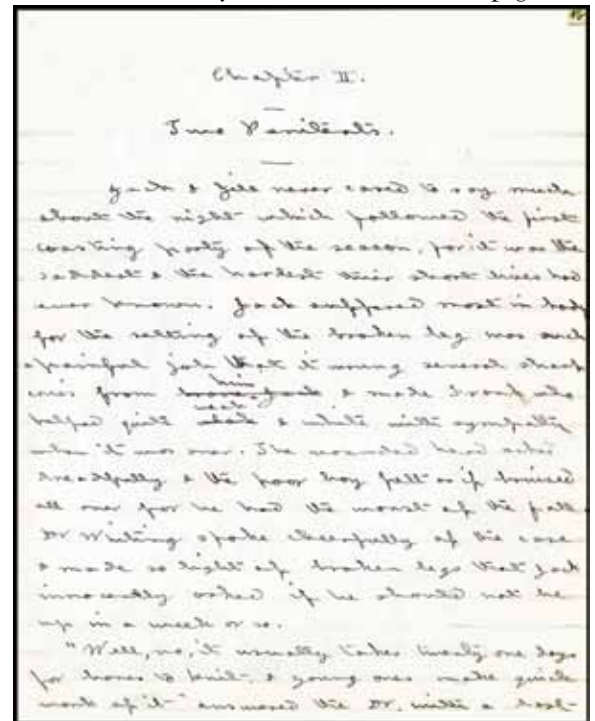 Chapter II.
Two Penitents.
Jack & Jill never cared to say much
about the night which followed the first
coasting party of the season, for it was the
saddest & the hardest their short lives had
ever known. Jack suffered most in body
for the setting of the broken leg was such
a painful job that it wrung several sharp
cries from him & made Frank who
helped quite weak & white with sympathy
when it was over. The wounded head ached
dreadfully & the poor boy felt as if bruised
all over for he had the worst of the fall.
Dr Whiting spoke cheerfully of the case
& made so light of broken legs that Jack
innocently asked if he should not be
up in a week or so.
"Well, no, it usually takes twenty one days
for bones to knit, & young ones make quick
work of it" answered the Dr, with a last